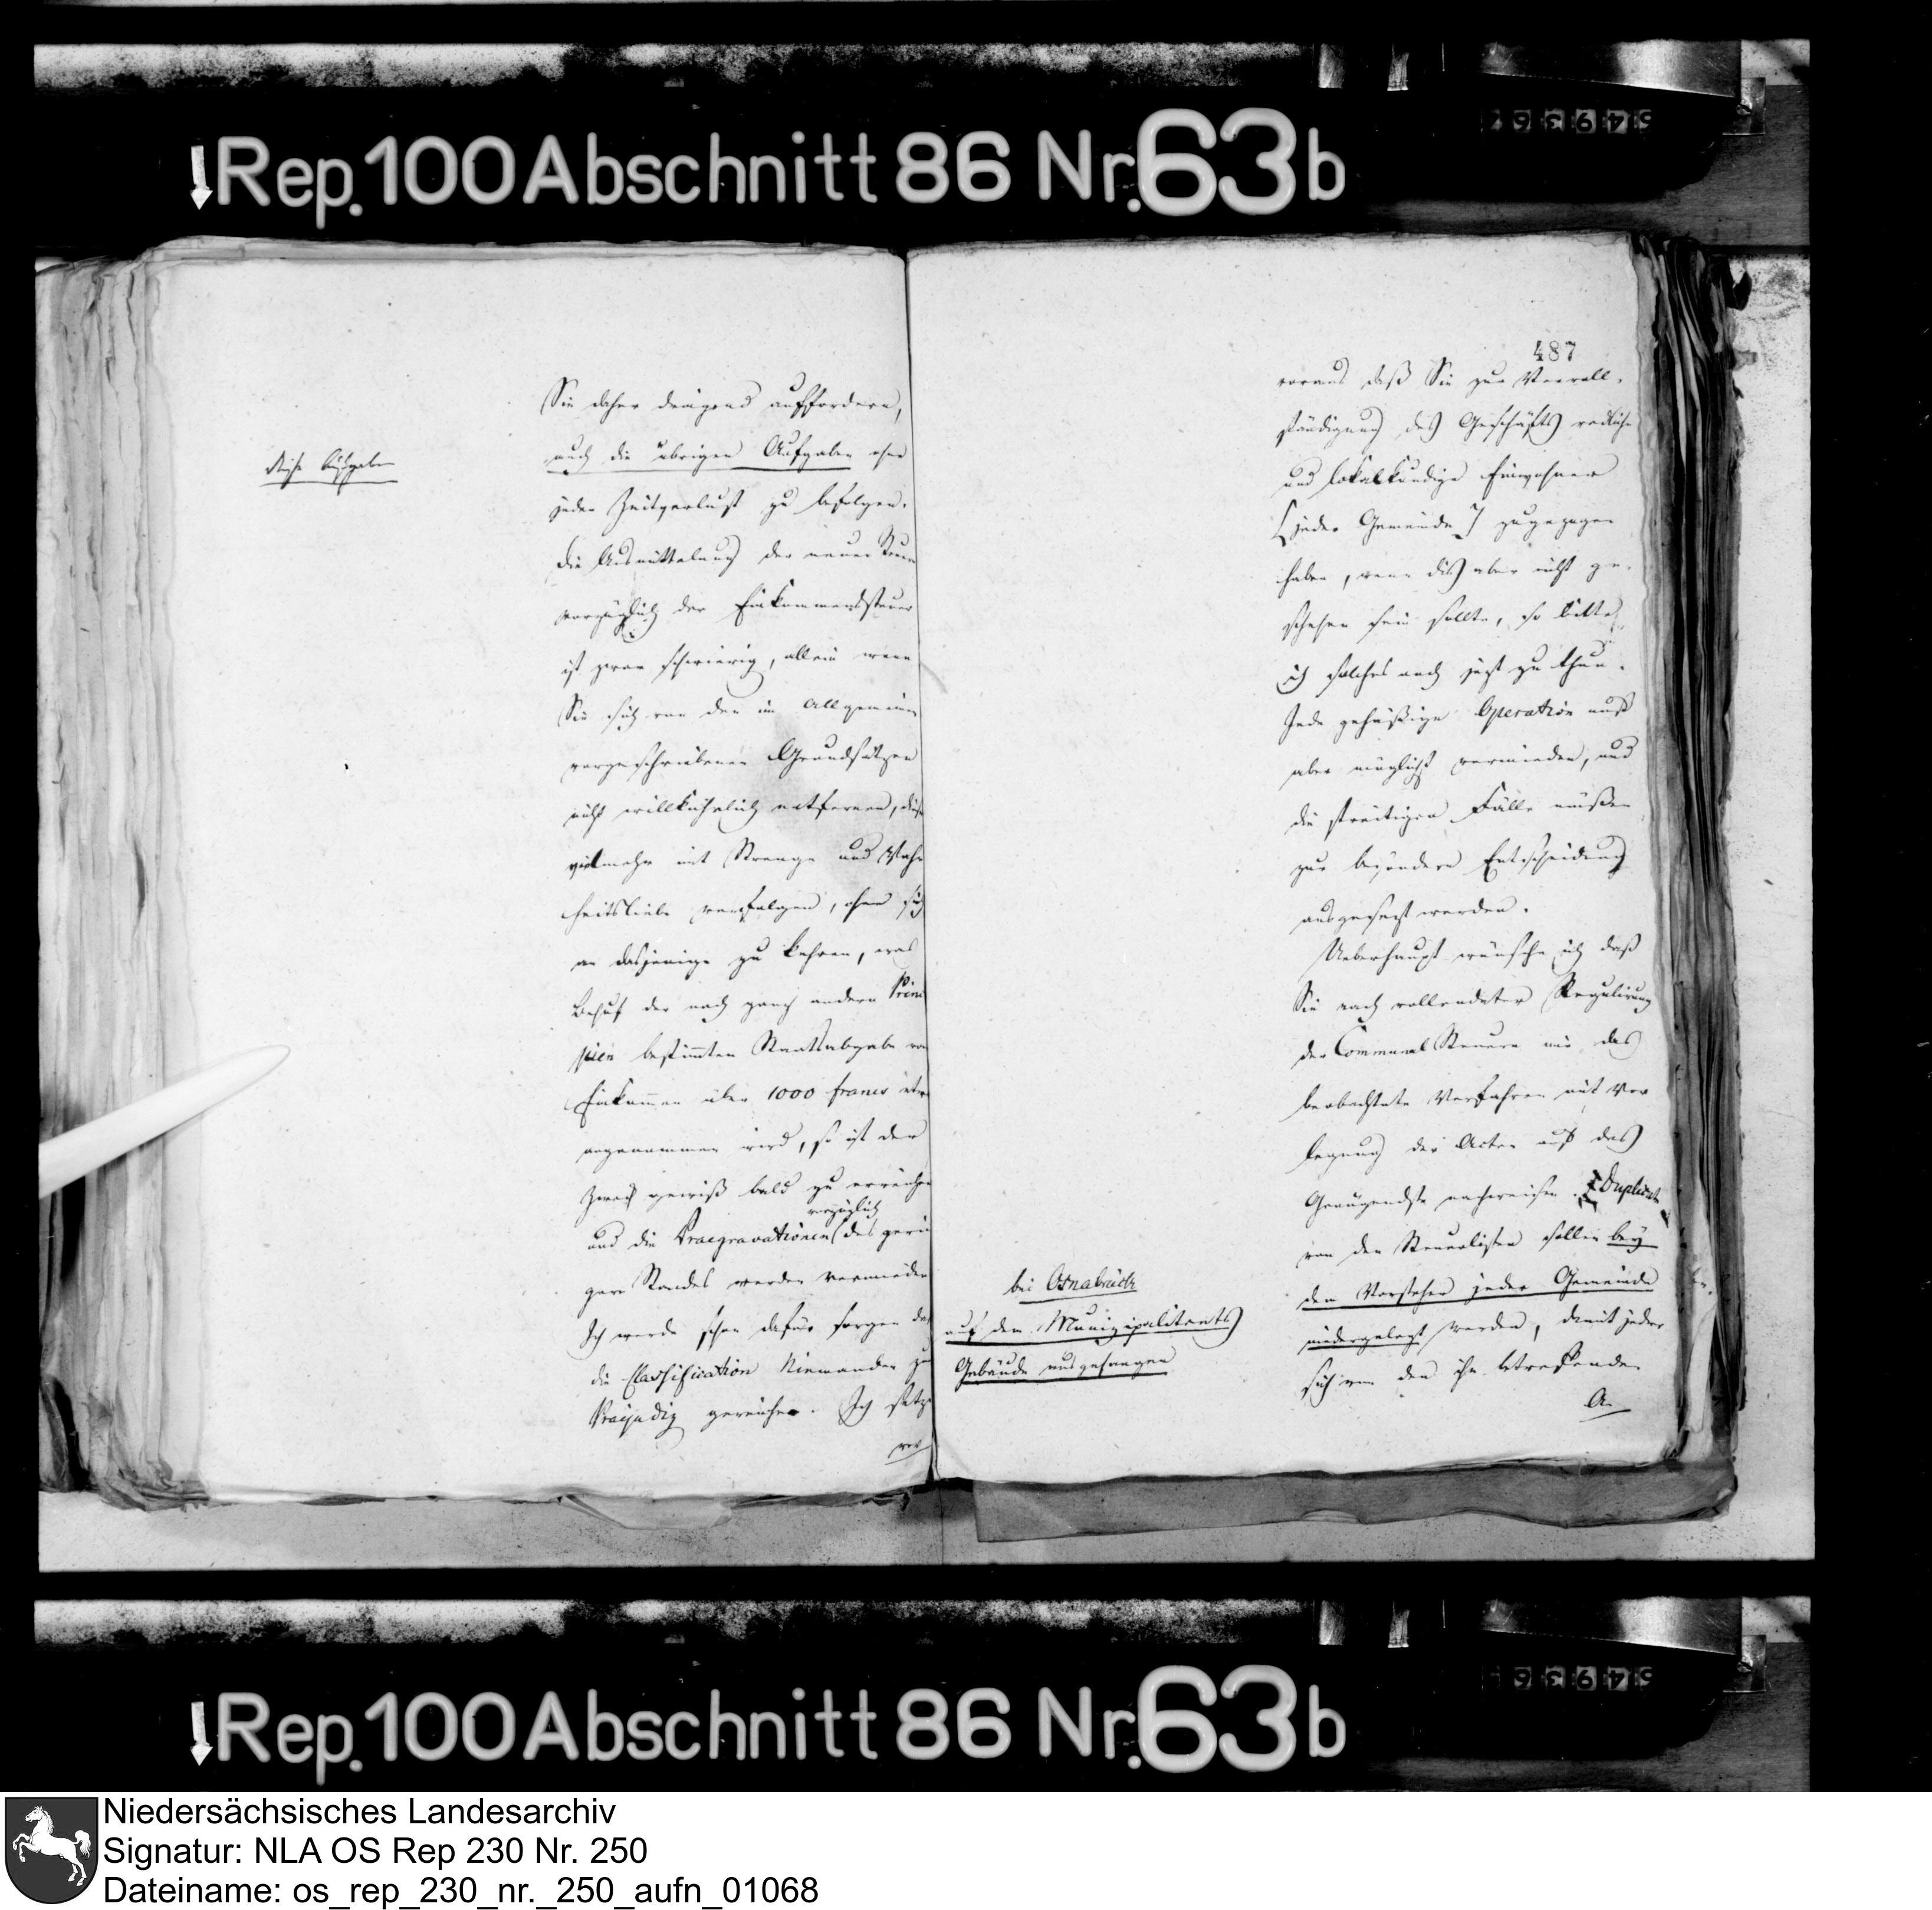 Rep. 100 Abschnitt 86 Nr. 63 b
Sie daher dringend auffordern,
auch die übrigen Aufgaben ohne
jeden Zeitverlust zu befolgen.
Die Ausmittelung der neuen Steuer
vorzüglich der Einkommensteuer
ist zwar schwierig, allein wenn
Sie sich von den im Allgemeinen
vorgeschriebenen Grundsätzen
nicht willkührlich entfernen, diese
vielmehr mit Strenge und Wahr
heitsliebe verfolgen, ohne sich
an dasjenige zu kehren, was
Behuf der nach ganz andern Prin
pien bestimmten Staatsabgabe von
Einkommen über 1000 francs etwa
angenommen wird, so ist der
Zweck gewiß bald zu erreichen
vorzüglich
und die Praegravationen des gerin
gern Standes werden vermieden
Ich werde schon dafür sorgen daß
die Classification Niemanden zu
Praejudiz gereiche. Ich setze
vor
487
voraus daß Sie zur Vervoll-
ständigung des Geschäfts redliche
und lokalkundige Einwohner
[jeder Gemeinde] zugezogen
haben, wenn dies aber nicht ge-
schehen sein sollte, so bitte
ich solches noch jetzt zu thun.
Jede gehässige Operation muß
aber möglichst vermieden, und
die streitigen Fälle müßen
zur besondern Entscheidung
ausgesetzt werden.
Ueberhaupt wünsche ich daß
Sie nach vollendeter Regulirung
der Communal Steuern mir das
beobachtete Verfahren mit Vor
legung der Acten auf das
Genügendste nachweisen. Duplicate
von den Steuerlisten sollen bey
dem Vorsteher jeder Gemeinde
niedergelegt werden, damit jeder
sich von den ihn betreffenden
A.
bei Osnabrück
auf dem Munizipalitaets
Gebäude ausgehangen
Rep. 100 Abschnitt 86 Nr. 63 b
Niedersächsisches Landesarchiv
Signatur: NLA OS Rep 230 Nr. 250
Dateiname: os_rep_230_nr._250_aufn_01068